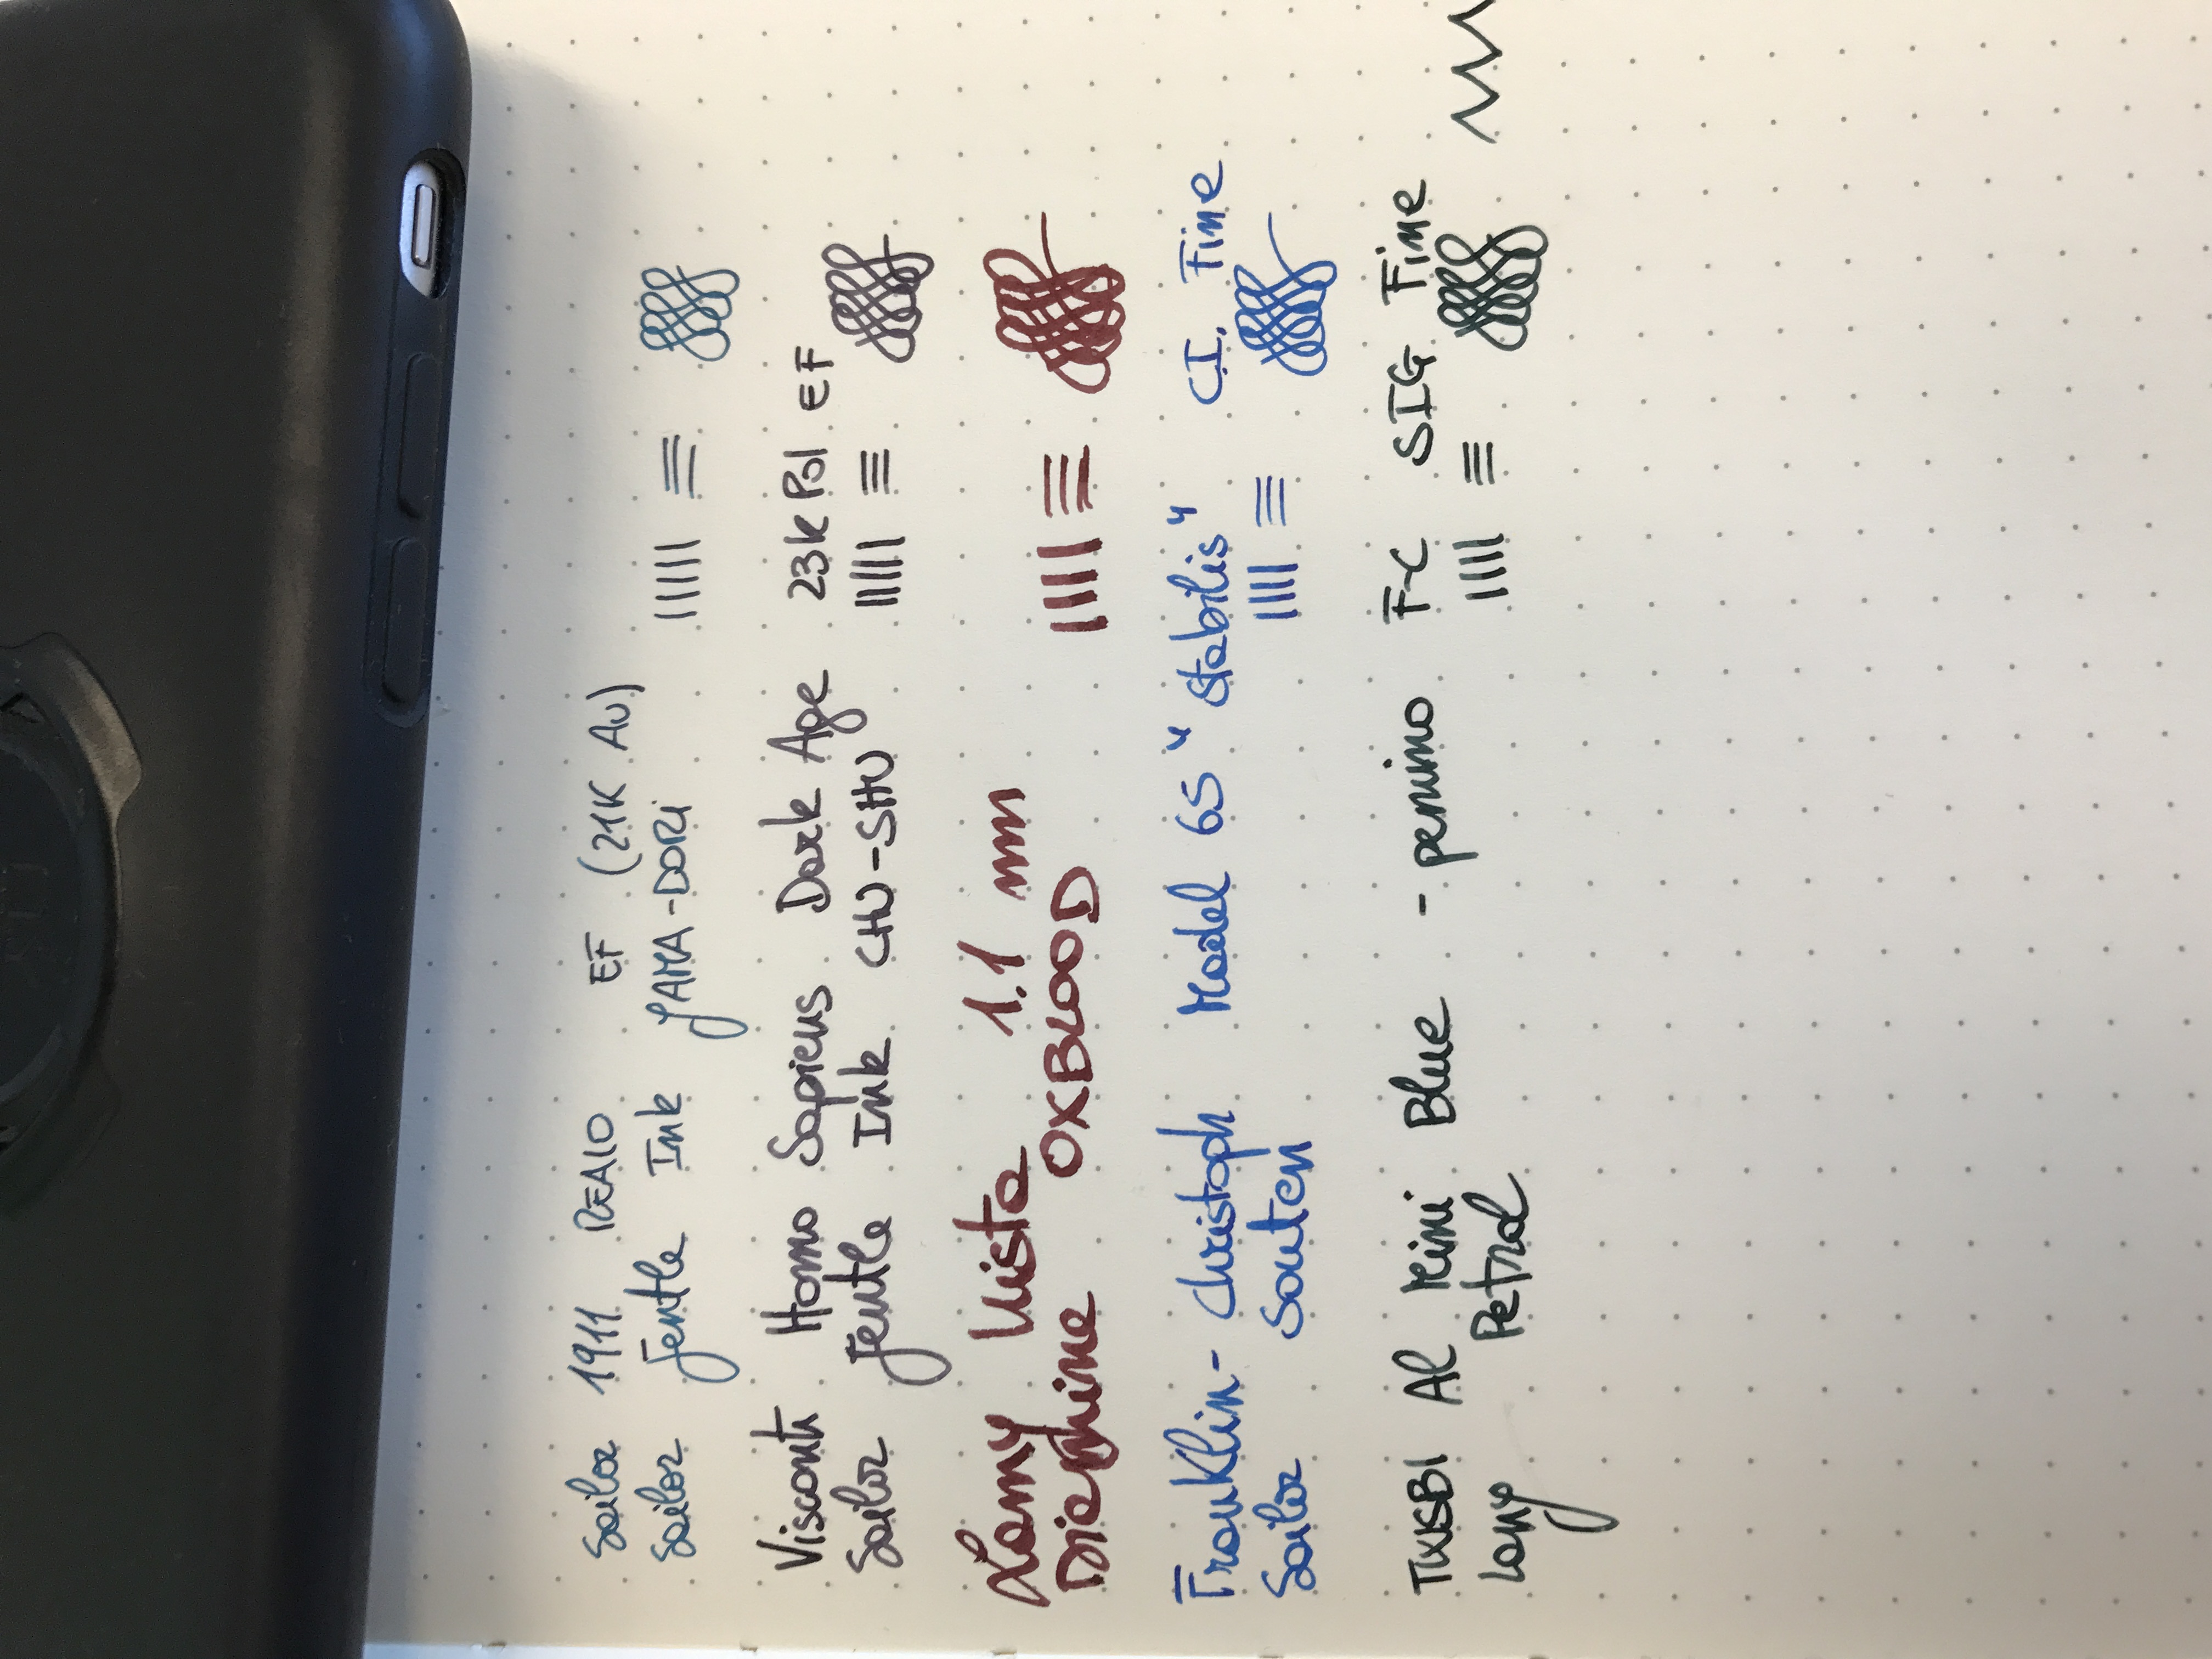 Sailor 1911 REALO EF (21K AU)
Sailor Jentle Ink YAMA-DORI
Visconti Homo Sapiens Dark Age 23k Pol EF
Sailor Jentle Ink CHU-SHU
Lamy Vista 1.1 mm
Diamine OXBLOOD
Franklin-Christoph Model 65 "Stabilis" C.I. Fine
Sailor Souten
TWSBI Al Mini Blue F-C SIG Fine
Lamy Petrol